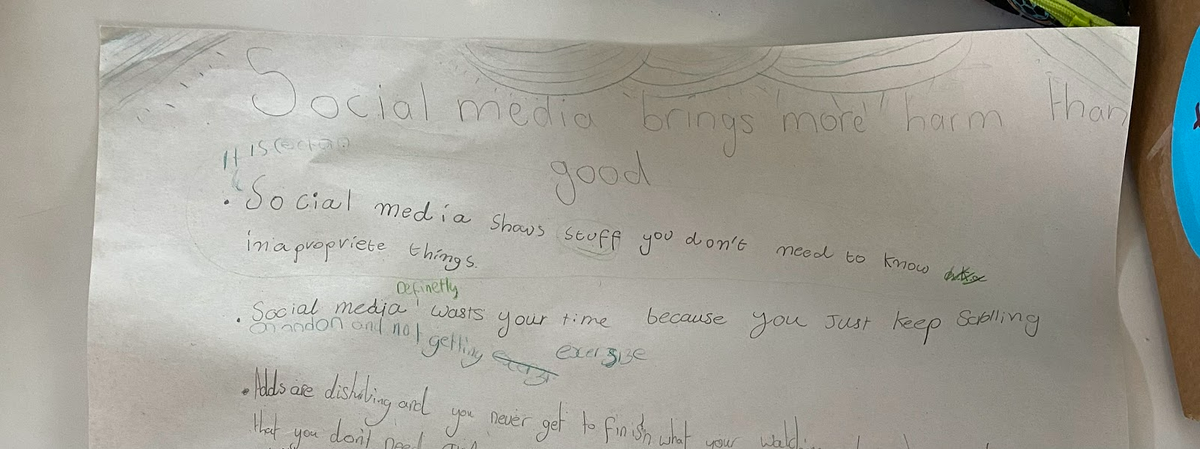 Social media "brings "more" harm than
good
It is
• Social media shows stuff you don't need to know
inapropriete things.
Definetly
• Social media wasts your time because you Just keep Scrolling
and not getting exersize
• Adds are distubing and you never get to finish what your
that you don't need